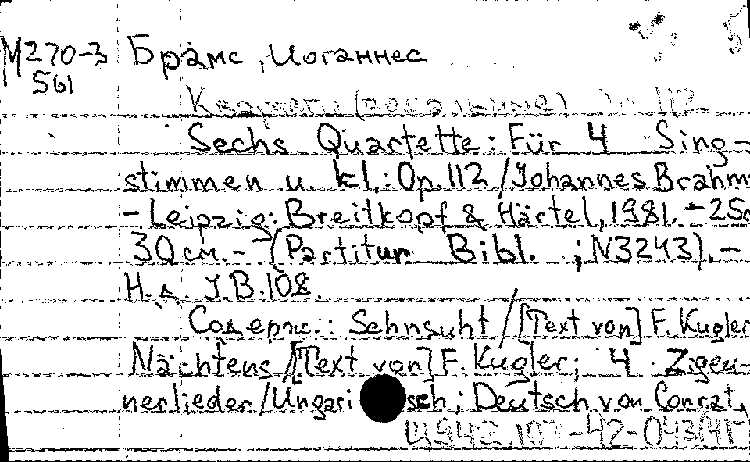 М270-3 Брамс, Иоганнес
561
Квартеты (вокальные) Op 112
Sechs Quartette: Für 4 Sing-
stimmen u. kl.: Op.112 / Johannes Brahm
- Leipzig: Breitkopf & Härtel, 1981. - 25c
30см. - (Partitur Bibl. ; N3243). -
Н.д J.B.108.
Содерж.: Sehnsuht / [Text von] F. Kugler
Nächtens / [Text von] F. Kugler; 4 Zigeu-
nerlieder / Ungarisch; Deutsch von Conrat.